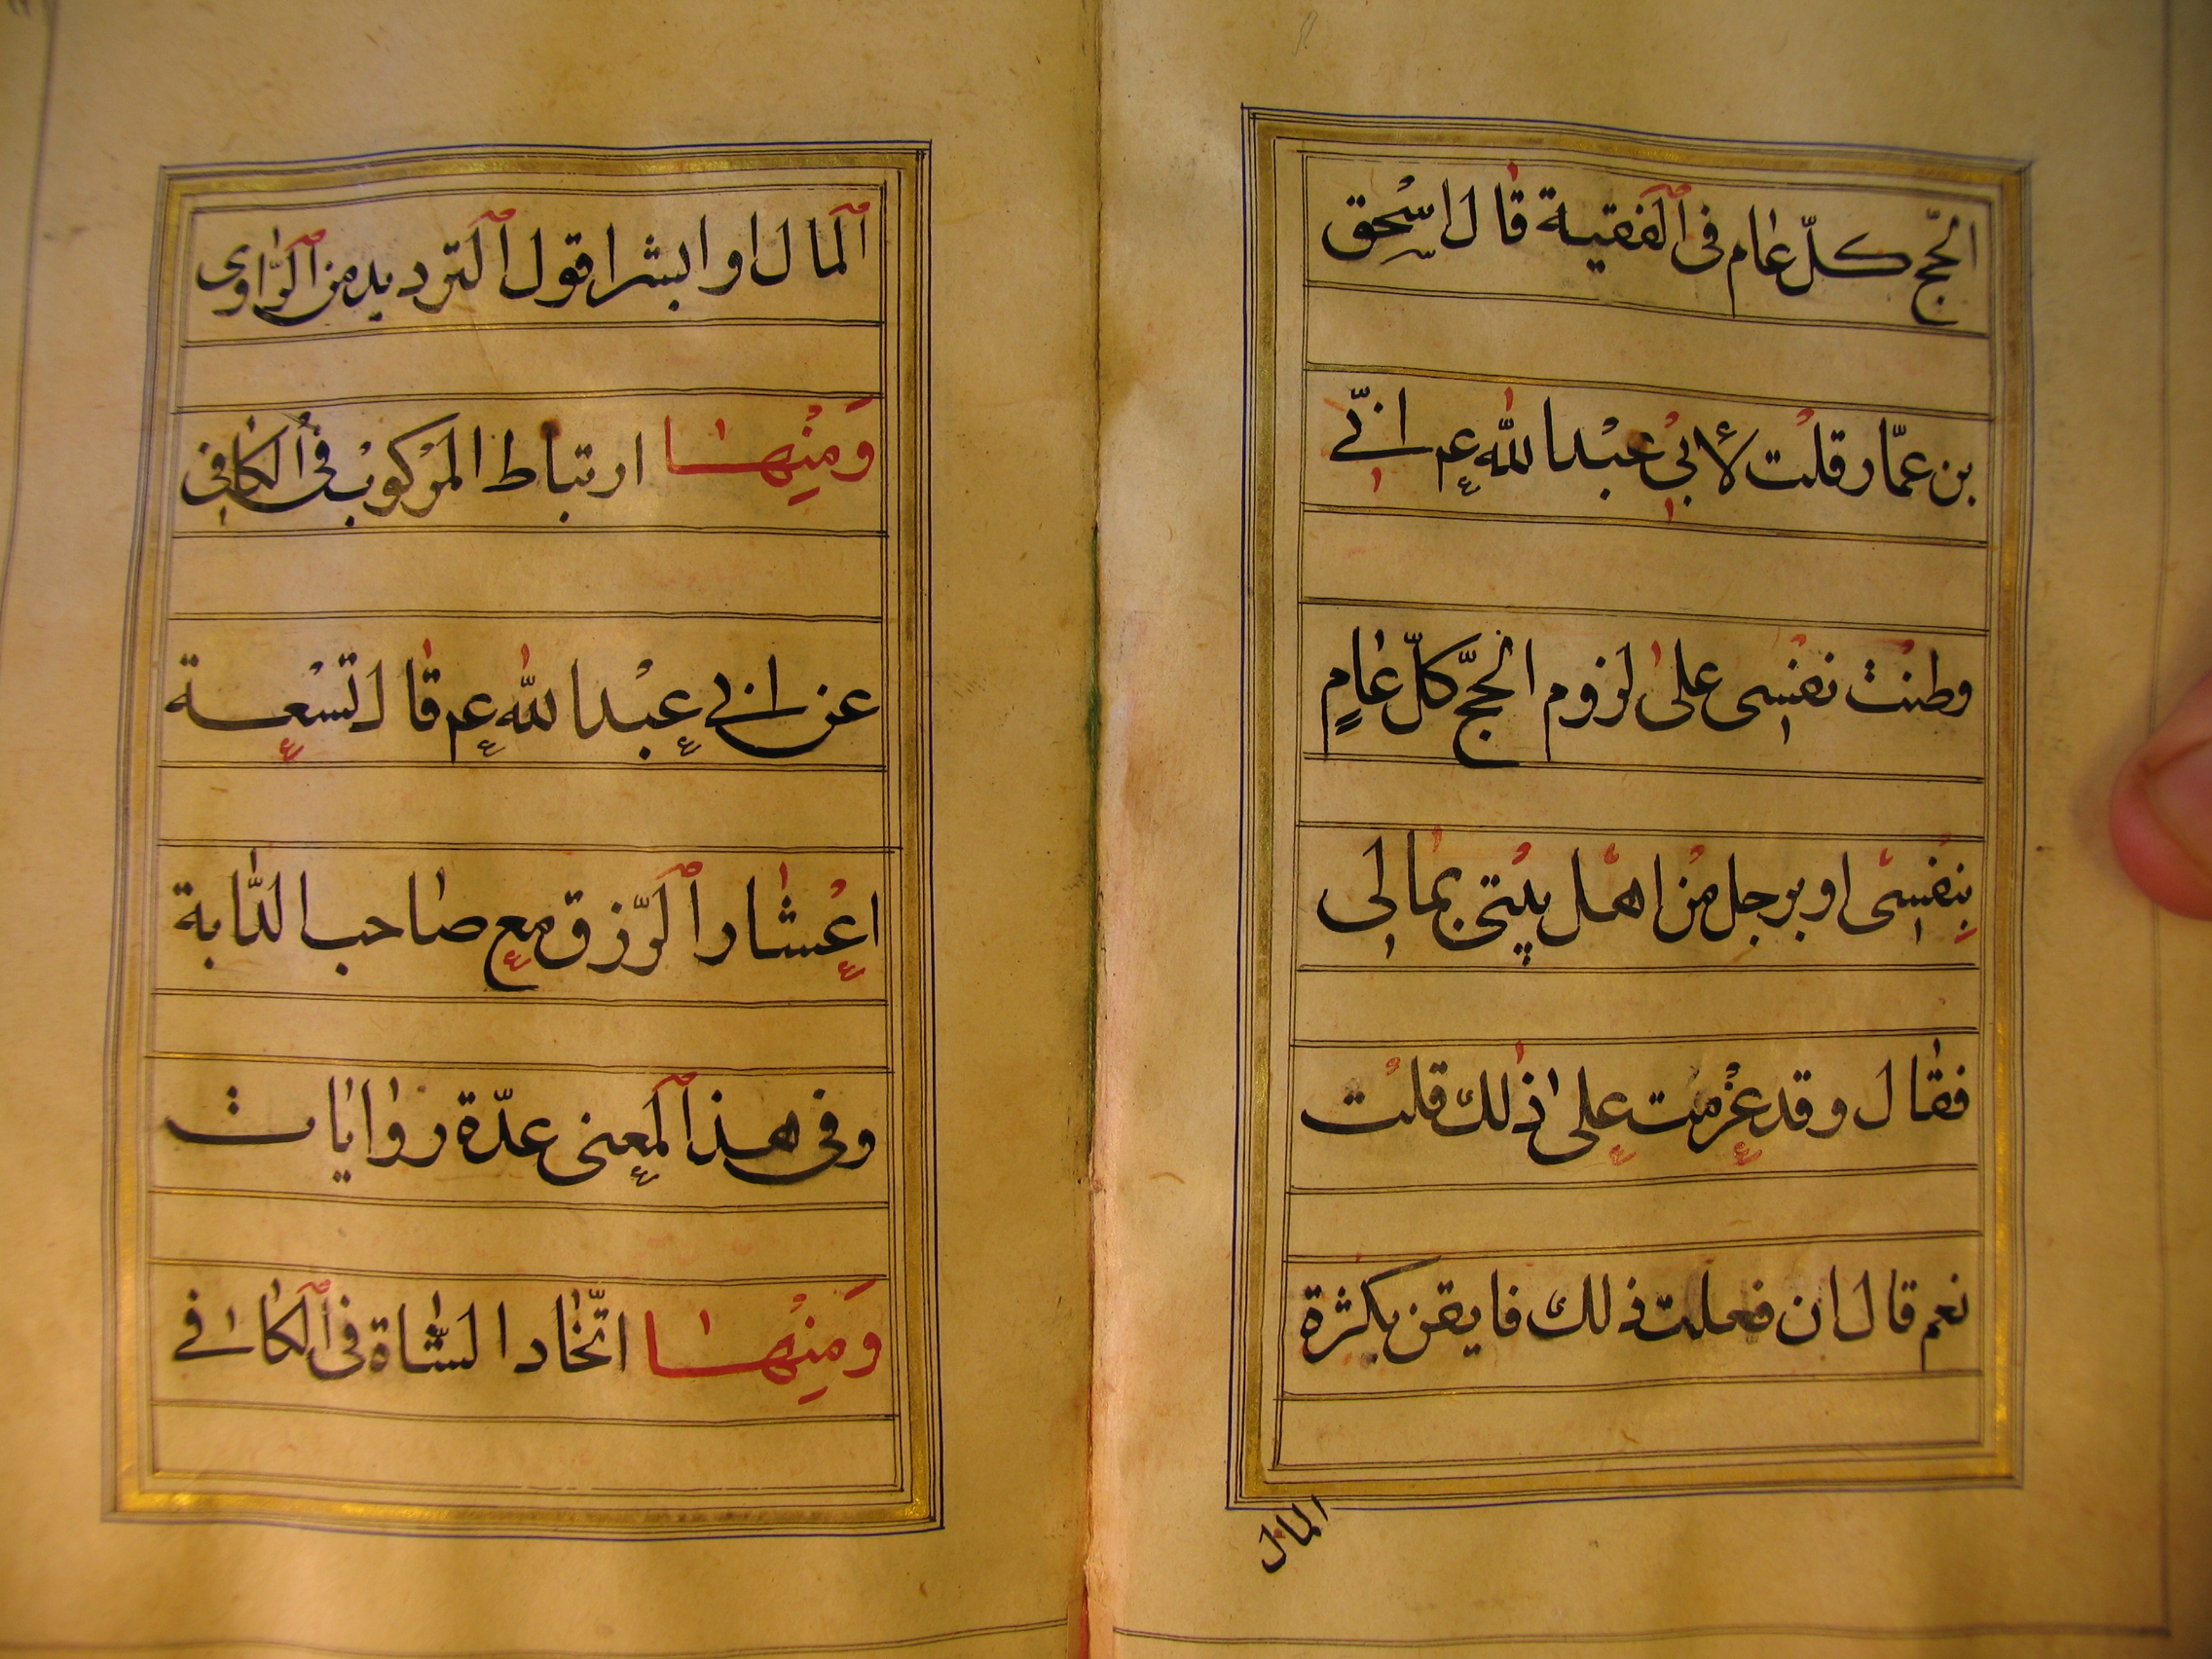 الحجّ كلّ عام فى الفقيه قال اسْحق
بن عمّار قلت لأبى عبْدالله عم انّى
وطنت نفسى على لزوم الحجّ كلّ عامٍ
بنفسى او برجل من اهل بيتى بمالى
فقال وقد عزمت على ذلك قلت
نعم قال ان فعلت ذلك فايقن بكثرة
المال
المال او ابشر اقول الترديد من الرّاوى
وَمنْها ارتباط المَرْكوبْ فى الكافى
عن ابى عبْدالله عم قال تسْعة
اعْشار الرّزق مع صاحب الدّابة
وفى هذا المعنى عدّة روايات
وَمنْها اتّخاد الشّاة فى الكافى